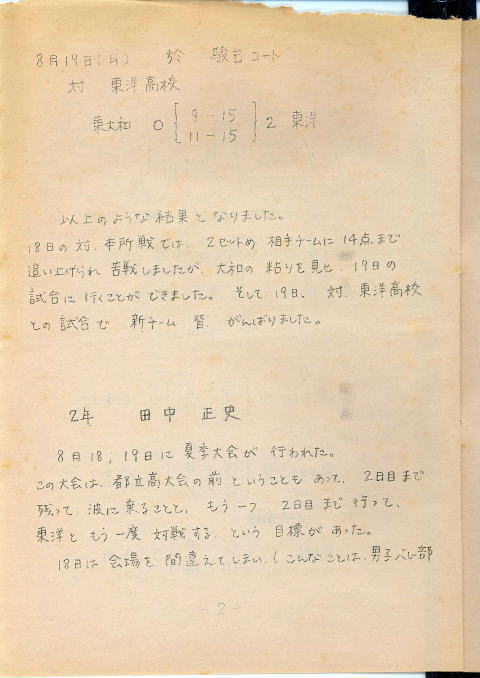 8月19日(月) 於 駿台コート
対 東洋高校
東大和 0 [ 9 - 15 ] 2 東洋
11 - 15
以上のような結果となりました。
18日の対.本所戦では、2セットめ 相手チームに14点まで
追い上げられ 苦戦しましたが、大和の粘りを見せ、19日の
試合に行くことができました。そして19日、対.東洋高校
との試合で 新チーム 皆、がんばりました。
2年 田中 正史
8月18,19日に夏季大会が行われた。
この大会は、都立高大会の前ということもあって、2日目まで
残って、波に乗ることと、もう一つ 2日目まで行って、
東洋ともう一度 対戦する、という目標があった。
18日は会場を間違えてしまい、(こんなことは、男子バレー部
- 2 -